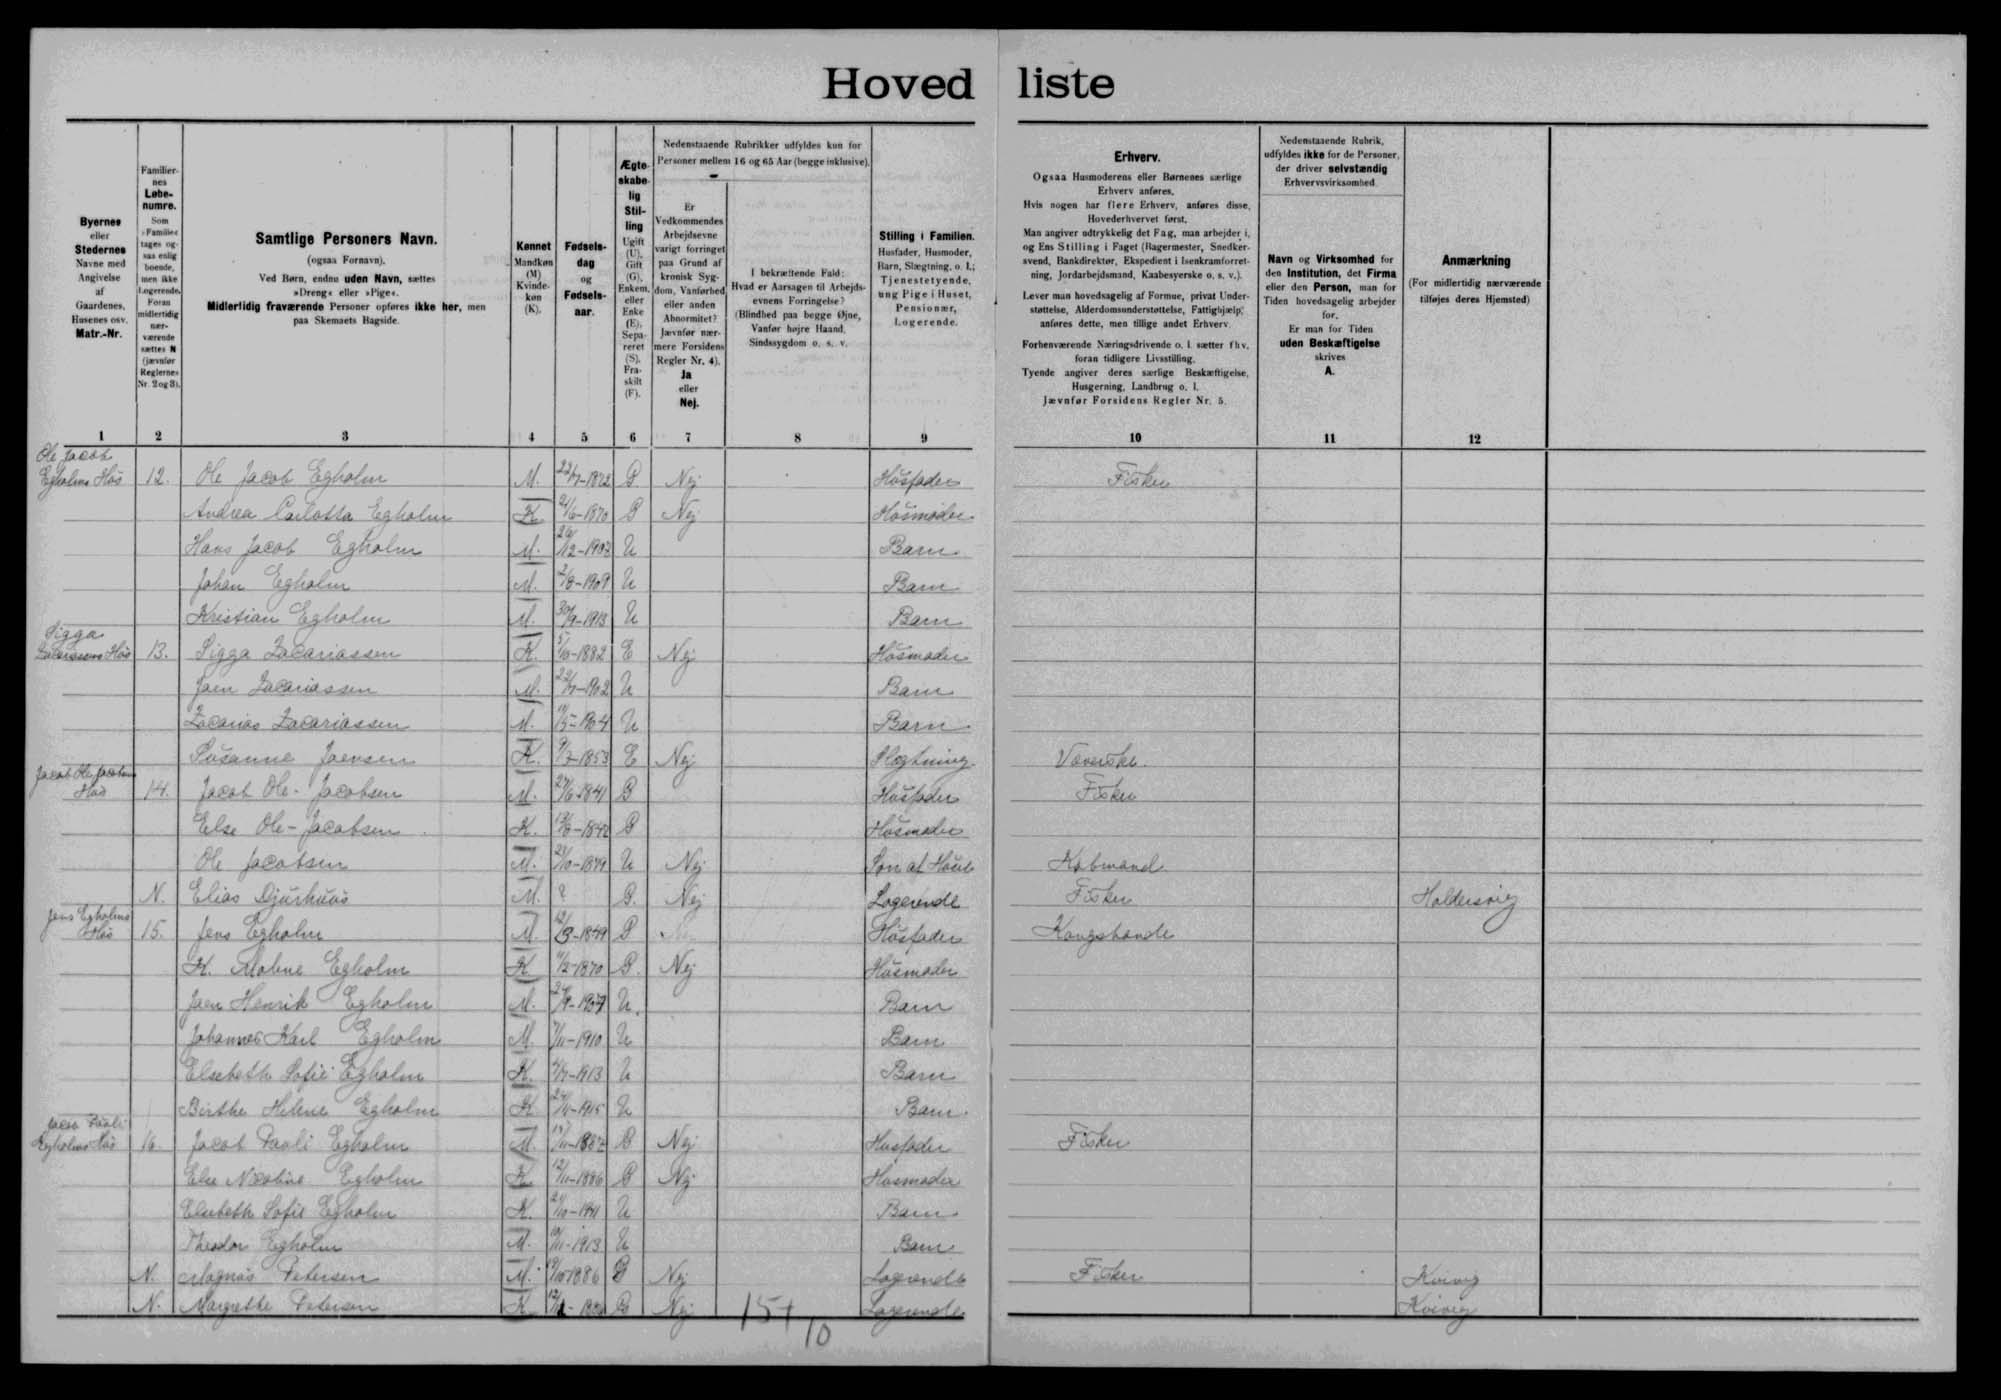 Hoved liste
Byernes
eller
Stedernes
Navne med
Angivelse
af
Gaardenes,
Husenes osv.
Matr.-Nr.
Familier-
nes
Løbe-
numre.
Som
»Familie«
tages og-
saa enlig
boende,
men ikke
Logerende.
Foran
midlertidig
nær-
værende
sættes N
(jævnfør
Reglernes
Nr. 2 og 3).
Samtlige Personers Navn.
(ogsaa Fornavn).
Ved Børn, endnu uden Navn, sættes
»Dreng« eller »Pige«.
Midlertidig fraværende Personer opføres ikke her, men
paa Skemaets Bagside.
Kønnet
Mandkøn
(M)
Kvinde-
køn
(K).
Fødsels-
dag
og
Fødsels-
aar.
Ægte-
skabe-
lig
Stil-
ling
Ugift
(U),
Gift
(G),
Enkem.
eller
Enke
(E),
Sepa-
reret
(S),
Fra-
skilt
(F).
Nedenstaaende Rubrikker udfyldes kun for
Personer mellem 16 og 65 Aar (begge inklusive).
Er
Vedkommendes
Arbejdsevne
varigt forringet
paa Grund af
kronisk Syg-
dom, Vanførhed
eller anden
Abnormitet?
Jævnfør nær-
mere Forsidens
Regler Nr. 4).
Ja
eller
Nej.
I bekræftende Fald:
Hvad er Aarsagen til Arbejds-
evnens Forringelse?
(Blindhed paa begge Øjne,
Vanfør højre Haand,
Sindssygdom o. s. v.
Stilling i Familien.
Husfader, Husmoder,
Barn, Slægtning, o. l.;
Tjenestetyende,
ung Pige i Huset,
Pensionær,
Logerende.
Erhverv.
Ogsaa Husmoderens eller Børnenes særlige
Erhverv anføres.
Hvis nogen har flere Erhverv, anføres disse,
Hovederhvervet først.
Man angiver udtrykkelig det Fag, man arbejder i,
og Ens Stilling i Faget (Bagermester, Snedker-
svend, Bankdirektør, Ekspedient i Isenkramforret-
ning, Jordarbejdsmand, Kaabesyerske o. s. v.).
Lever man hovedsagelig af Formue, privat Under-
støttelse, Alderdomsunderstøttelse, Fattighjælp,
anføres dette, men tillige andet Erhverv.
Forhenværende Næringsdrivende o. l. sætter fhv.
foran tidligere Livsstilling.
Tyende angiver deres særlige Beskæftigelse,
Husgerning, Landbrug o. l.
Jævnfør Forsidens Regler Nr. 5.
Nedenstaaende Rubrik,
udfyldes ikke for de Personer,
der driver selvstændig
Erhvervsvirksomhed
Navn og Virksomhed for
den Institution, det Firma
eller den Person, man for
Tiden hovedsagelig arbejder
for.
Er man for Tiden
uden Beskæftigelse
skrives
A.
Anmærkning
(For midlertidig nærværende
tilføjes deres Hjemsted)
1 2 3 4 5 6 7 8 9 10 11 12
Ole Jacob
Egholms Hús 12. Ole Jacob Egholm M. G Nej Húsfader Fisker
Andrea Carlotta Egholm K 24/6-1870 G Nej Húsmoder
Hans Jacob Egholm M. U Barn
Johan Egholm M. 2/8-1909 U Barn
Kristian Egholm M. 30/9-1913 U Barn
Sigga
Zacariasens Hús 13. Sigga Zacariassen K. 5/10-1882 E Nej Húsmoder
Joen Zacariassen M. U Barn
Zacarias Zacariassen M. U Barn
Súsanne Joensen K. 9/3-1853 E Nej Slægtning Væverske.
Jacob Ole Jacobsens
Hús 14. Jacob Ole-Jacobsen M. 27/6-1841 G Húsfader Fisker
Else Ole-Jacobsen K. G Húsmoder
Ole Jacobsen M. U Nej Søn af Húset Købmand
N. Elias Djúrhúus M. ? G. Nej Logerende Fisker Haldersvig
Jens Egholms
Hús 15. Jens Egholm M. G Húsfader Kongsbonde
K. Egholm K. 11/2-1870 G. Nej Húsmoder
Joen Henrik Egholm M. U. Barn
Johannes Karl Egholm M. 7/11-1910 U Barn
Elsebeth Sofie Egholm K. U Barn
Birthe Helene Egholm K. U Barn
Jacob Paoli
Egholms Hús 16. Jacob Paoli Egholm M. G Nej Husfader Fisker
Else Egholm K. 12/11-1886 G Nej Húsmoder
Elsebeth Sofie Egholm K. U Barn
Theodor Egholm M. 10/11-1913 U Barn
N. Magnús Petersen M. 19/10-1886 G Nej Logerende Fisker Kvivig
N. Margrethe Petersen K G Nej Logerende Kvivig
15+
10